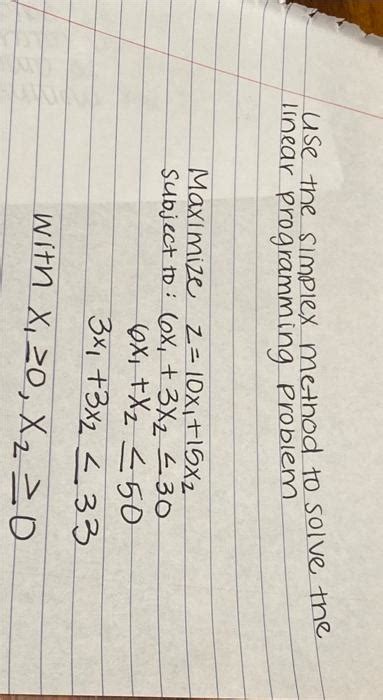 use the simplex method to solve the
linear programming problem
Maximize z = 10x₁ + 15x₂
subject to: 6x₁ + 3x₂ ≤ 30
6x₁ + x₂ ≤ 50
3x₁ + 3x₂ ≤ 33
with x₁ ≥ 0, x₂ ≥ 0